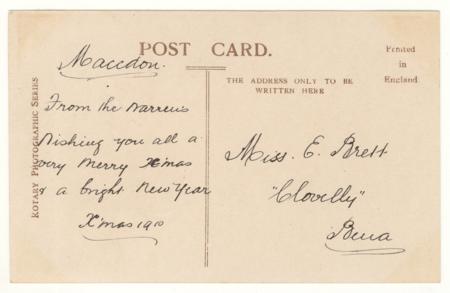 POST CARD.
Printed
in
England
THE ADDRESS ONLY TO BE
WRITTEN HERE
ROTARY PHOTOGRAPHIC SERIES
Macedon.
From the Warrens
Wishing you all a
very Merry Xmas
& a bright New Year
X'mas 1910
Miss. E. Brett
"Clovelly"
Bena